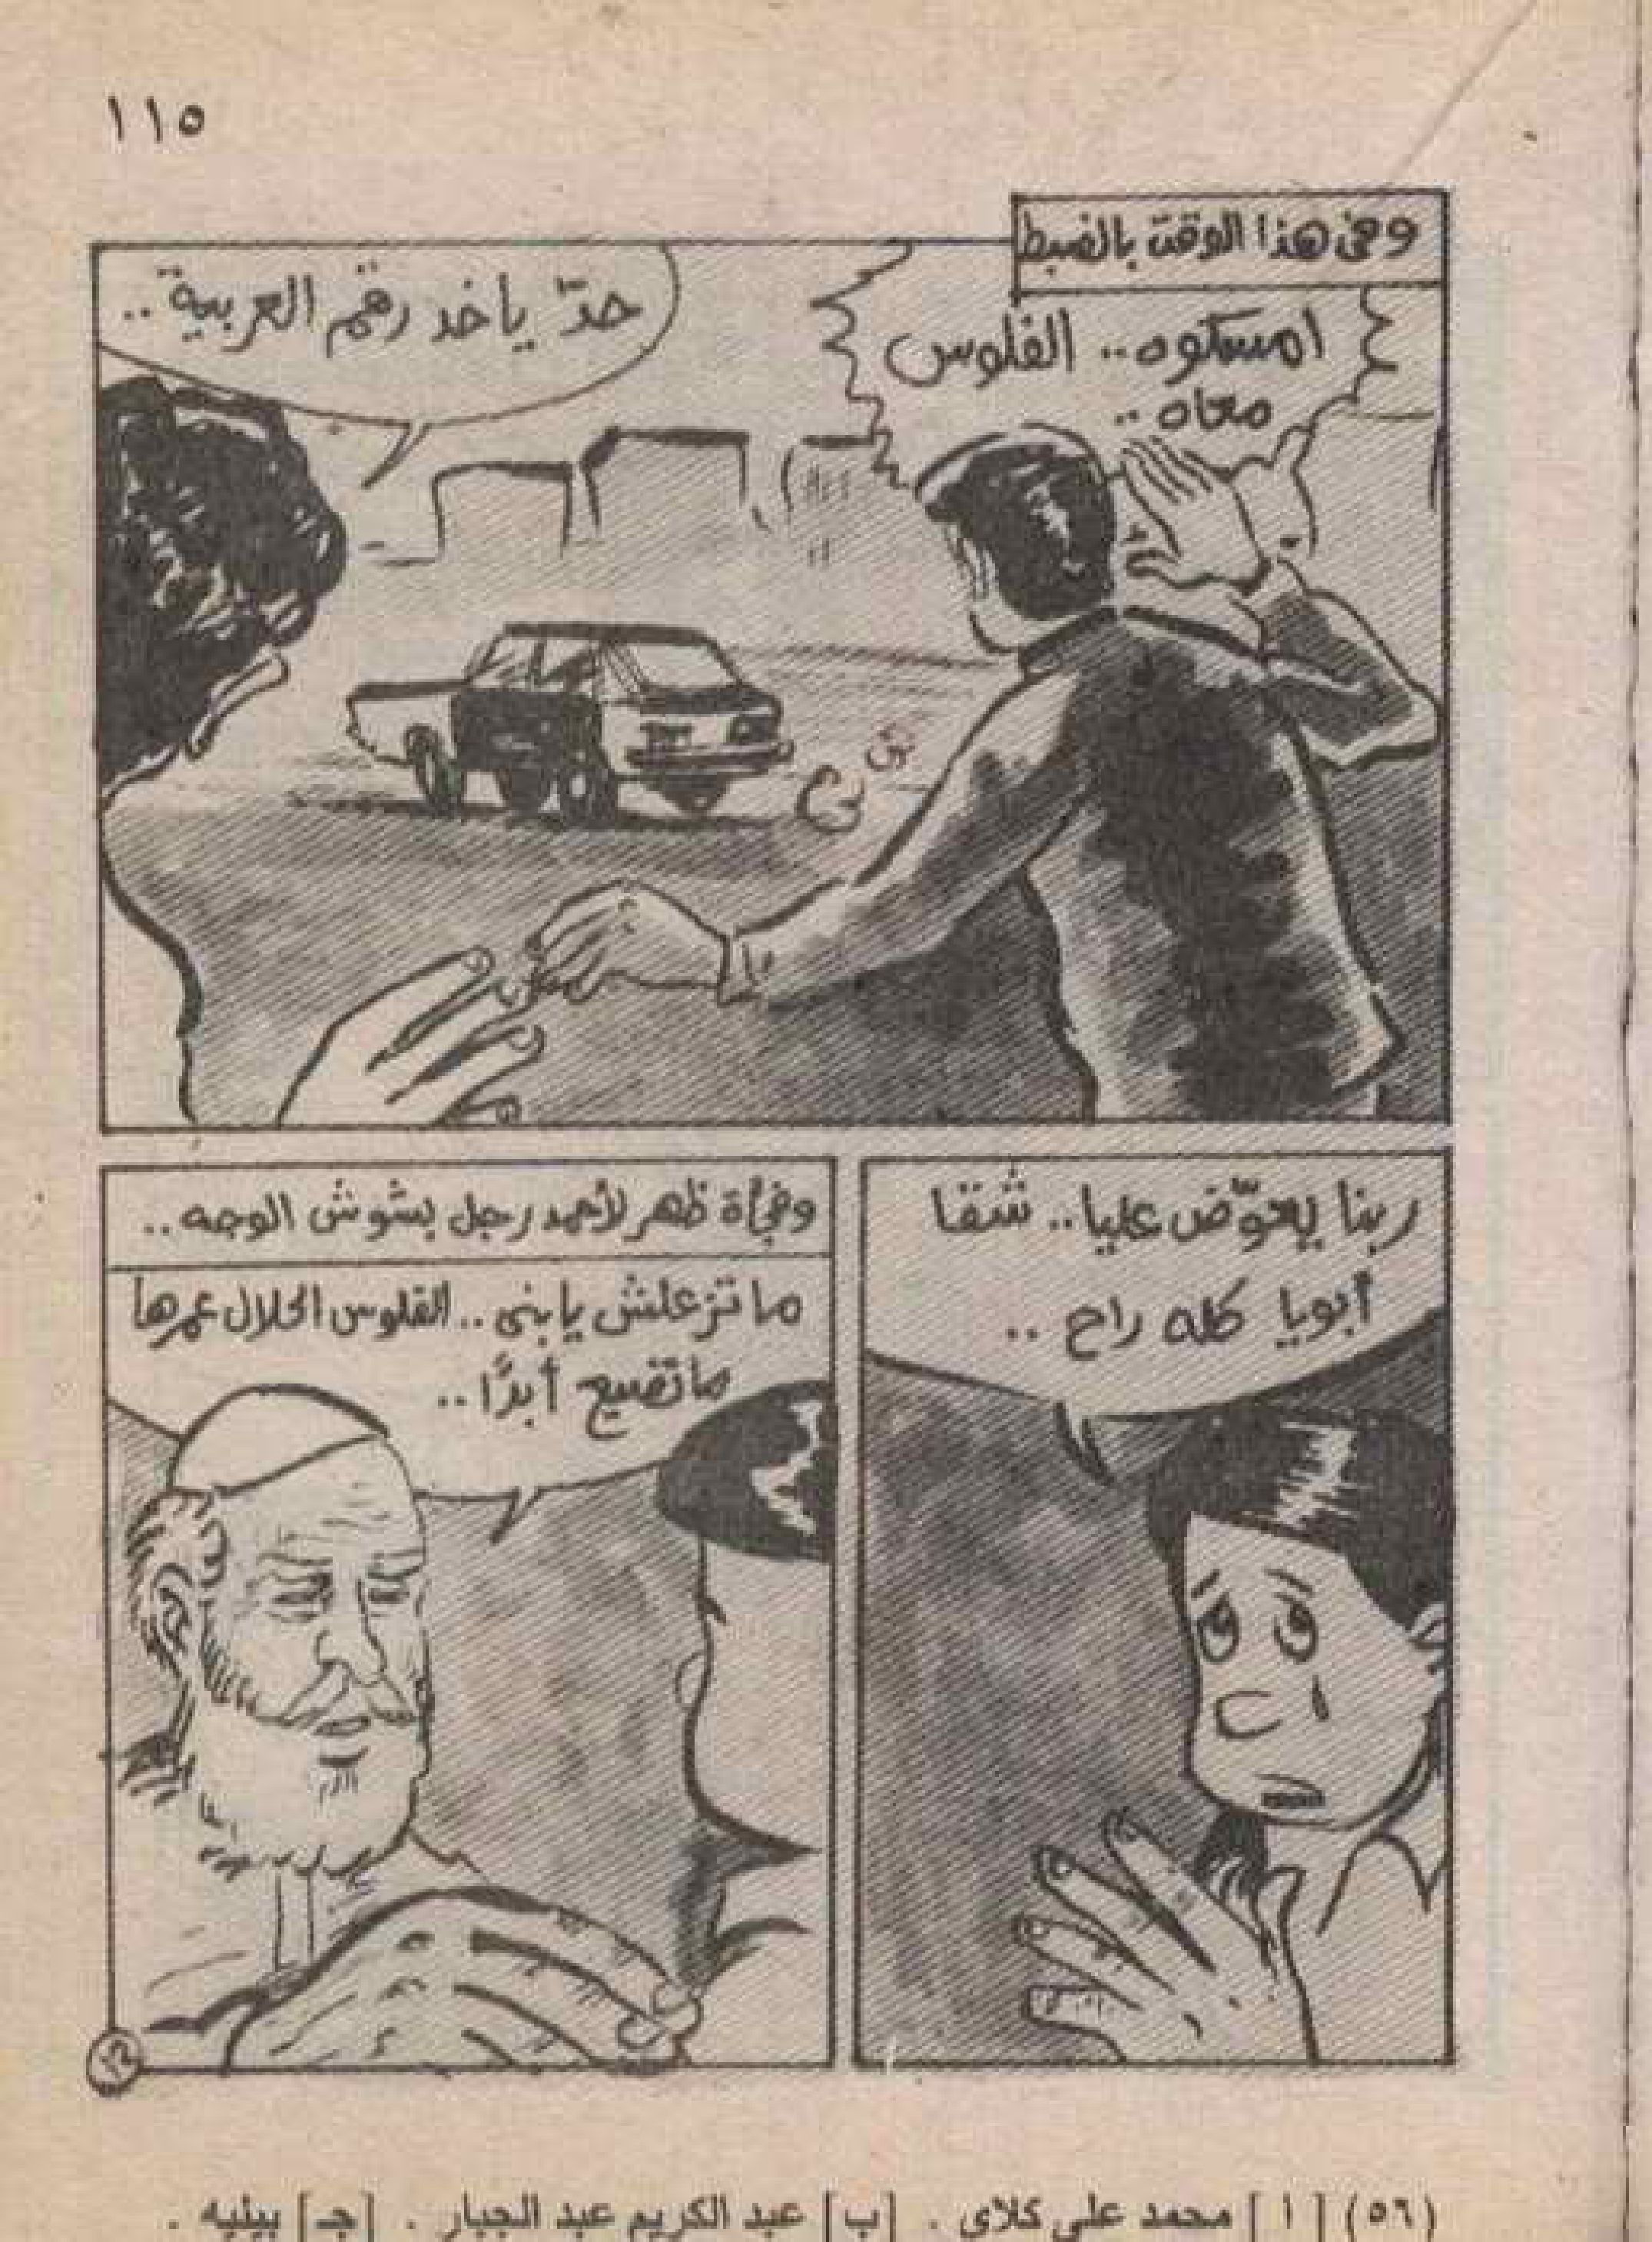 ١١٥
وفى هذا الوقت بالضبط
امسكوه.. الفلوس
معاه..
حدّ ياخد رقم العربية..
ربنا يعوّض عليا.. شقا
أبويا كله راح..
وفجأة ظهر لأحمد رجل بشوش الوجه..
ما تزعلش يا بنى.. الفلوس الحلال عمرها
ما تضيع أبدًا..
(٥٦) [أ] محمد على كلاى. [ب] عبد الكريم عبد الجبار. [جـ] بيليه.